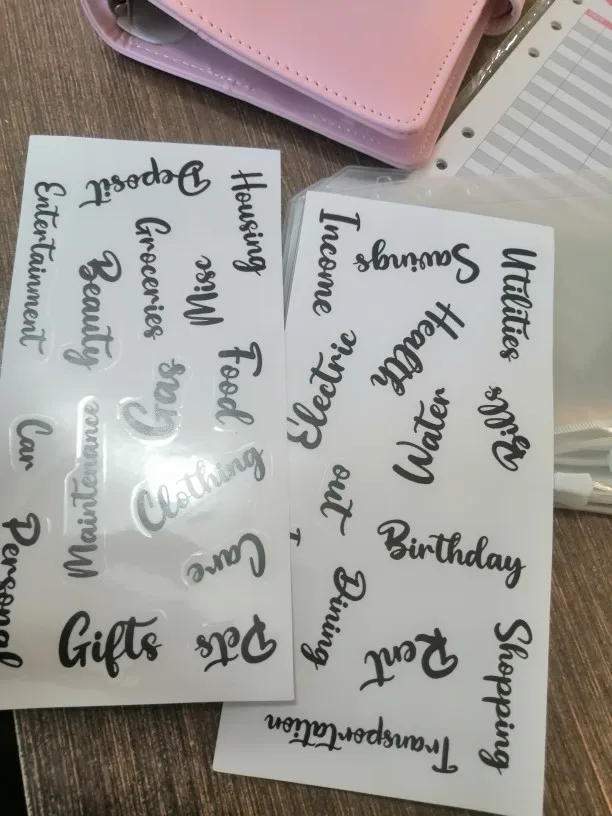 Housing
Deposit
Entertainment
Groceries
Misc
Beauty
Food
Gas
Car
Maintenance
Clothing
Care
Personal
Gifts
Pets
Income
Savings
Utilities
Health
Electric
Water
Bills
out
Birthday
Dining
Rent
Shopping
Transportation